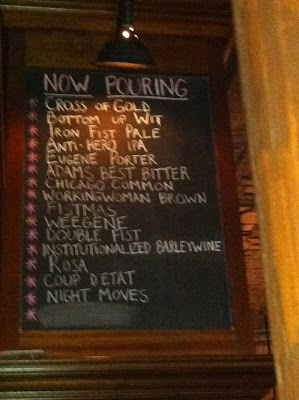 NOW POURING
CROSS OF GOLD
BOTTOM UP WIT
IRON FIST PALE
ANTI-HERO IPA
EUGENE PORTER
ADAMS BEST BITTER
CHICAGO COMMON
WORKINGWOMAN BROWN
FISTMAS
WEEGENE
DOUBLE FIST
INSTITUTIONALIZED BARLEYWINE
ROSA
COUP D'ETAT
NIGHT MOVES